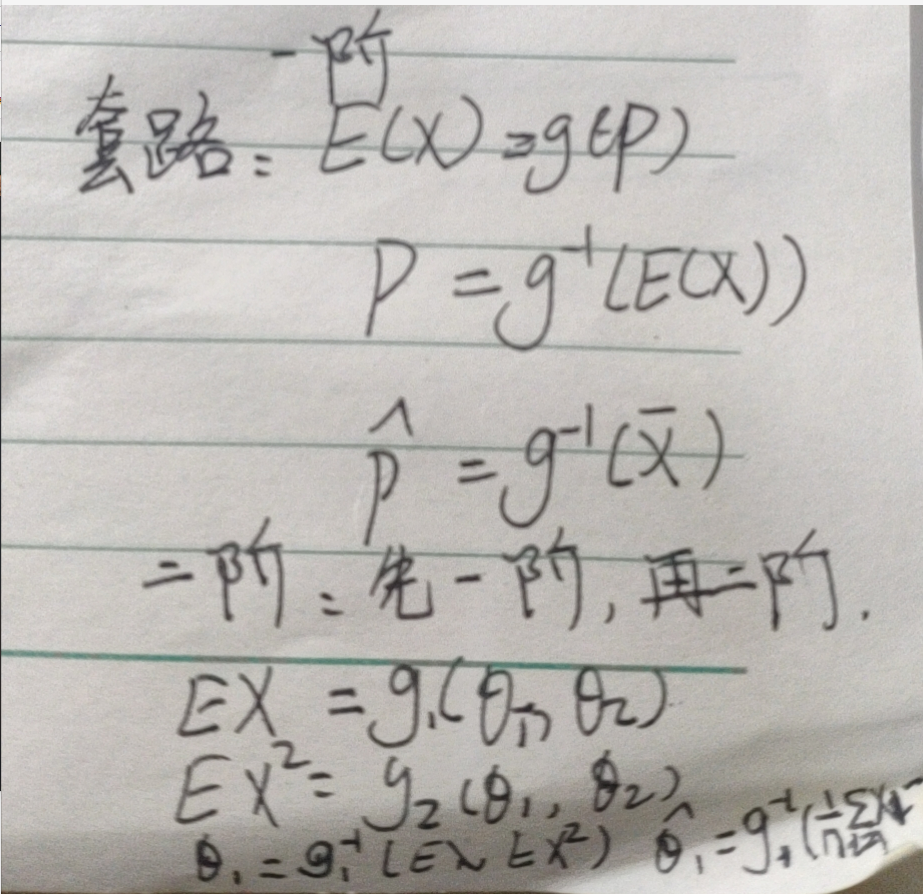 一阶
套路：E(X)=g(p)
P = g⁻¹(E(X))
p̂ = g⁻¹(X̄)
二阶：先一阶，再二阶.
EX = g₁(θ₁, θ₂)
EX² = g₂(θ₁, θ₂)
θ₁ = g₁⁻¹(EX, EX²) θ̂₁ = g₁⁻¹(